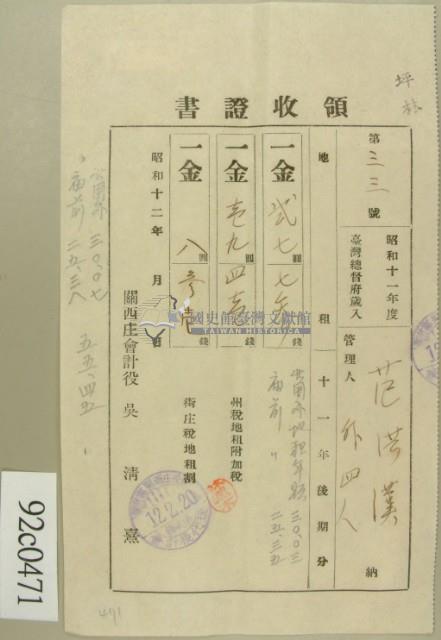 坪林
領收證書
第三三號
昭和十一年度
臺灣總督府歲入
管理人 范洪漢 外四人 納
地租 十一年後期分
一金 貳七圓七 錢
公園亦地租年額 三〇.〇三
庙前 〃 二五.三五
一金 壱九圓四 錢
州稅地租附加稅
一金 八圓參 錢
街庄稅地租割
昭和十二年 月 日
關西庄會計役 吳清熹
12.2.20
三〇.〇七
庙前 二五.三八
五五.四五
國史館臺灣文獻館
TAIWAN HISTORICA
92c0471
471